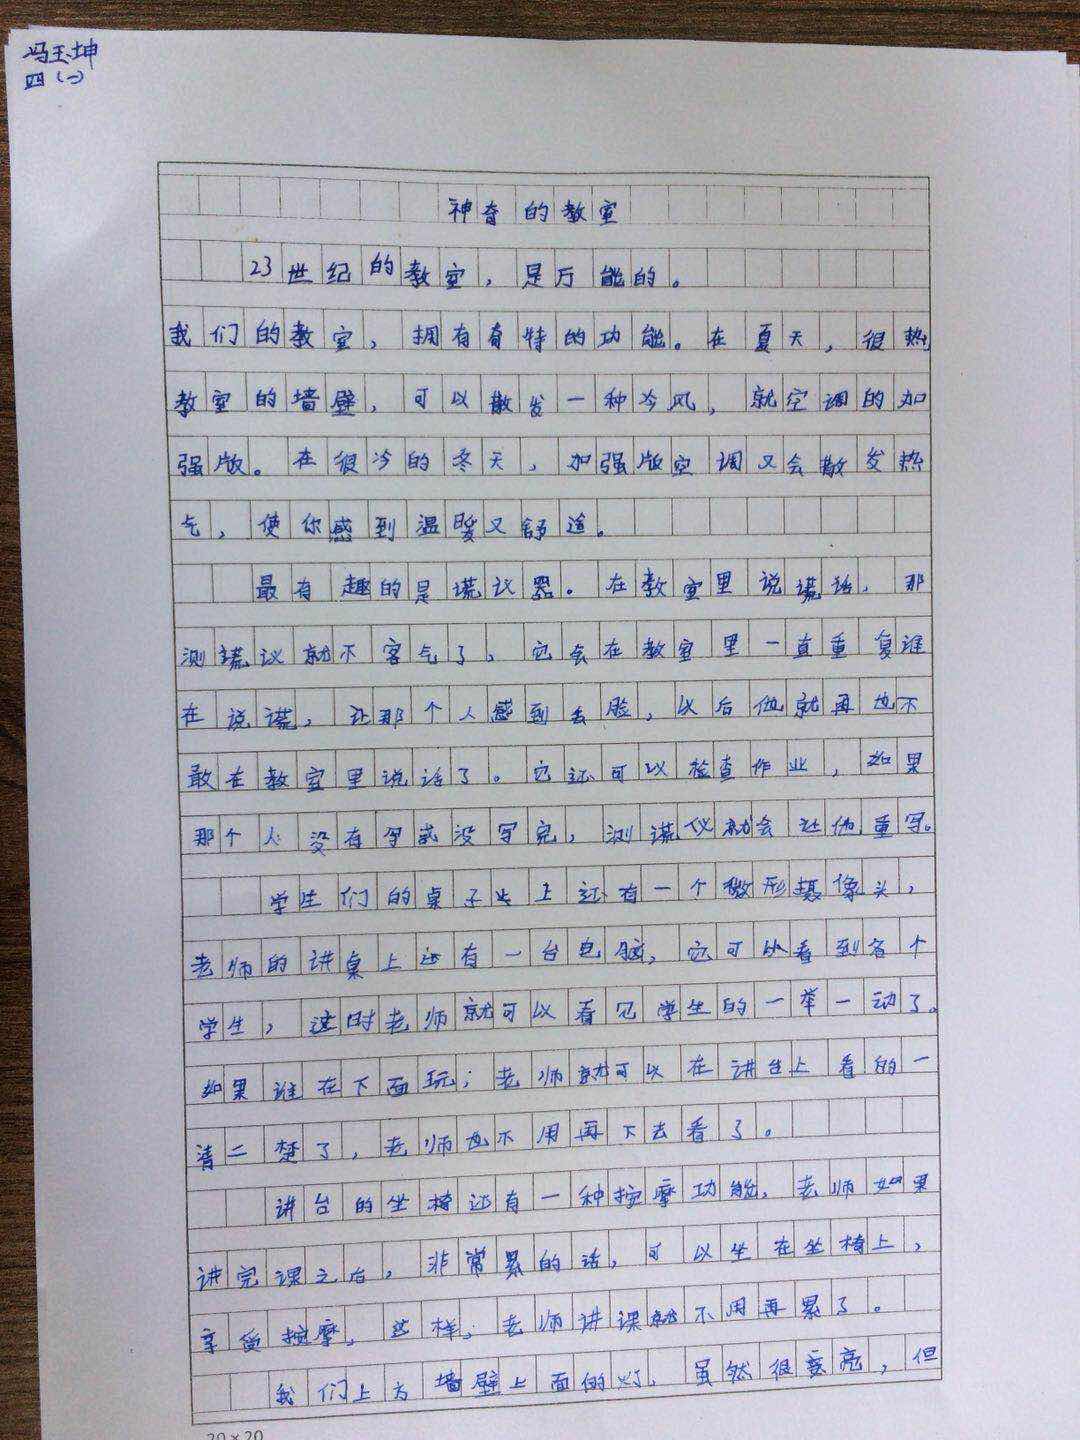 冯玉坤
四(一)
神奇的教室
23世纪的教室,是万能的。
我们的教室,拥有奇特的功能。在夏天,很热
教室的墙壁,可以散发一种冷风,就空调的加
强版。在很冷的冬天,加强版空调又会散发热
气,使你感到温暖又舒适。
最有趣的是谎议器。在教室里说谎话,那
测谎议就不客气了,它会在教室里一直重复谁
在说谎,让那个人感到丢脸,以后他就再也不
敢在教室里说话了。它还可以检查作业,如果
那个人没有写或没写完,测谎仪就会让他重写。
学生们的桌子上还有一个微形摄像头,
老师的讲桌上还有一台电脑,它可以看到各个
学生,这时老师就可以看见学生的一举一动了。
如果谁在下面玩;老师就可以在讲台上看的一
清二楚了,老师也不用再下去看了。
讲台的坐椅还有一种按摩功能,老师如果
讲完课之后,非常累的话,可以坐在坐椅上,
享受按摩,这样,老师讲课就不用再累了。
我们上方墙壁上面的灯,虽然很亮,但
20×20